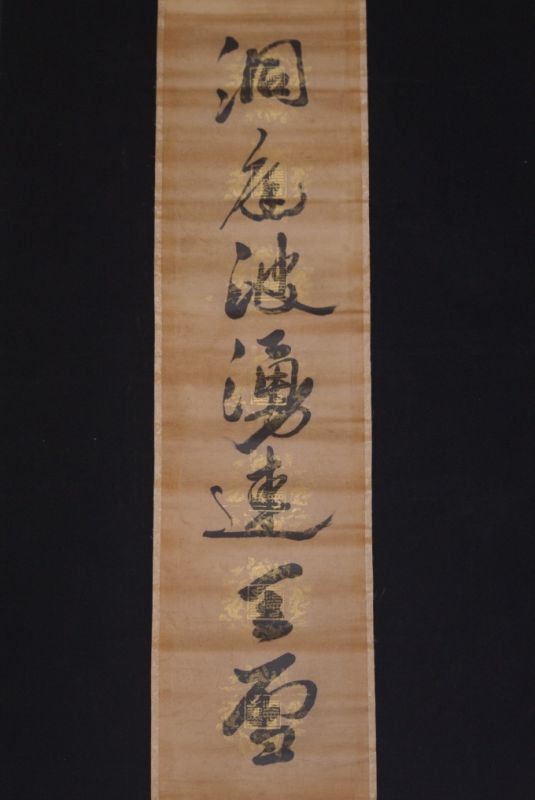 洞庭波湧連天雪